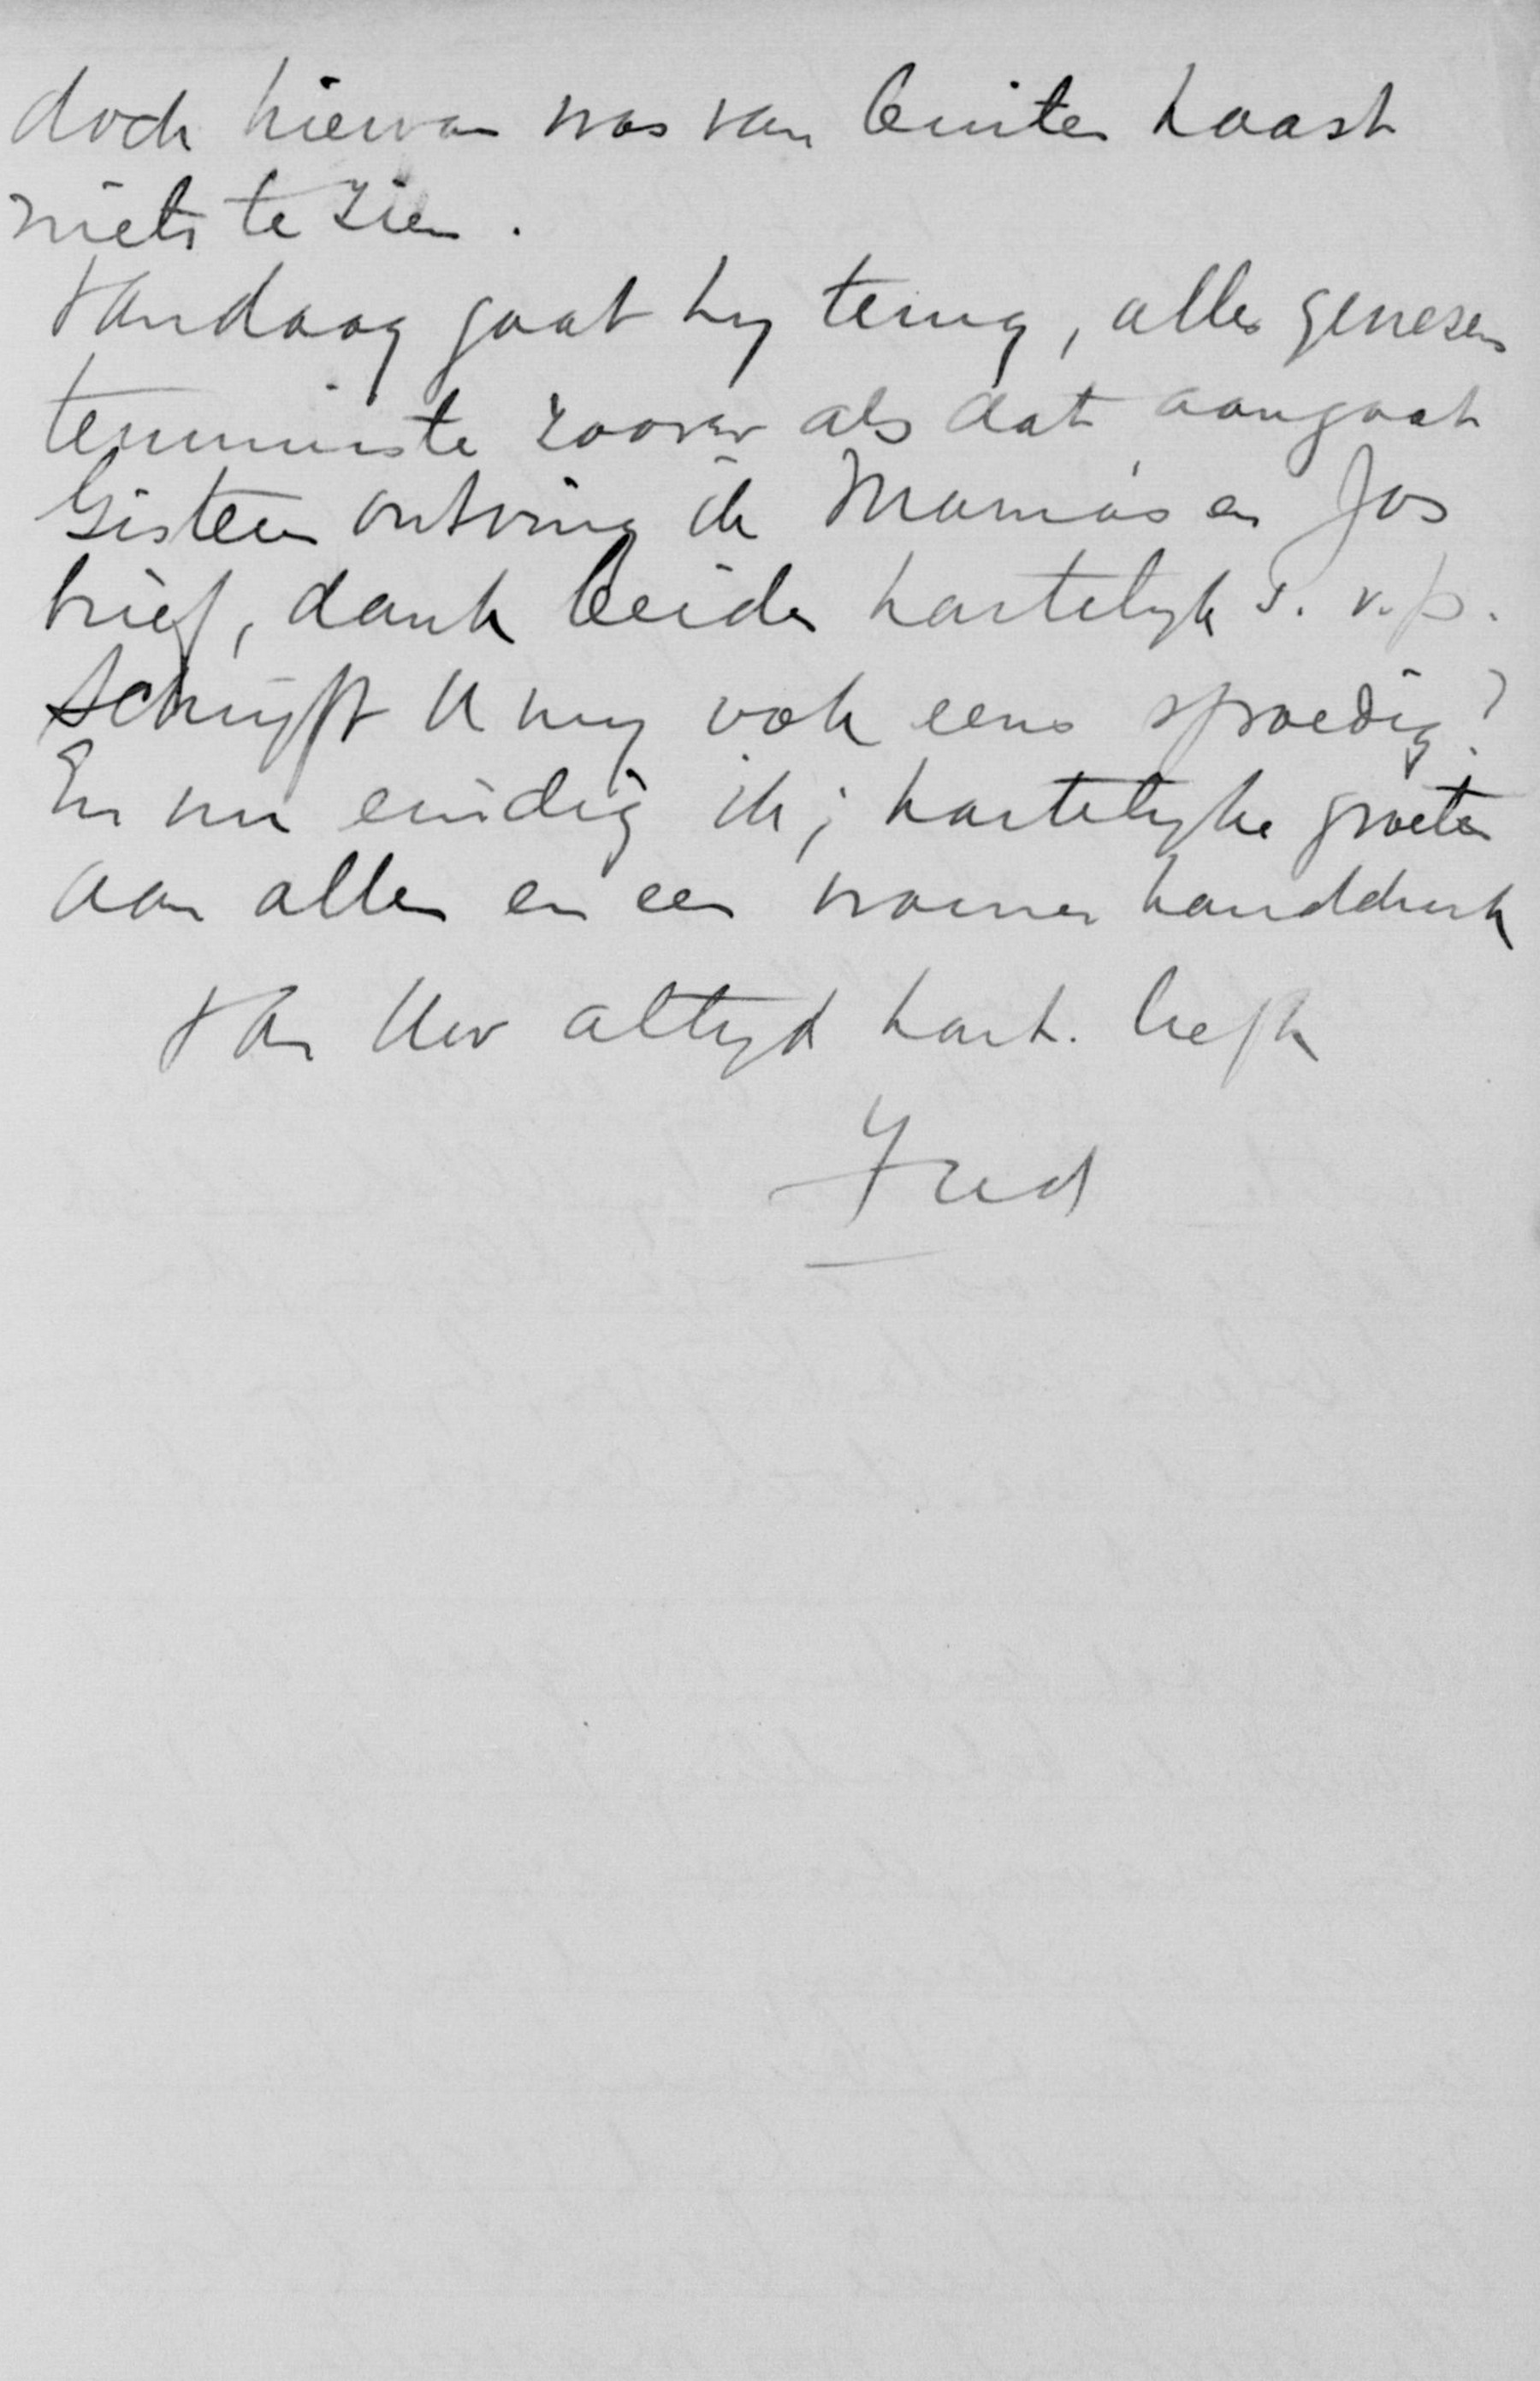 doch hiervan was van buiten haast
niets te zien.
Vandaag gaat hy terug, alles genezen
tenminste zoover als dat aangaat
Gisteren ontving ik Mama's en Jos
brief, dank beide hartelyk s.v.p.
Schryft U my ook eens spoedig?
En nu eindig ik; hartelyke groeten
aan allen en een warmen handdruk
van Uw altyd hart. liefh
Fred